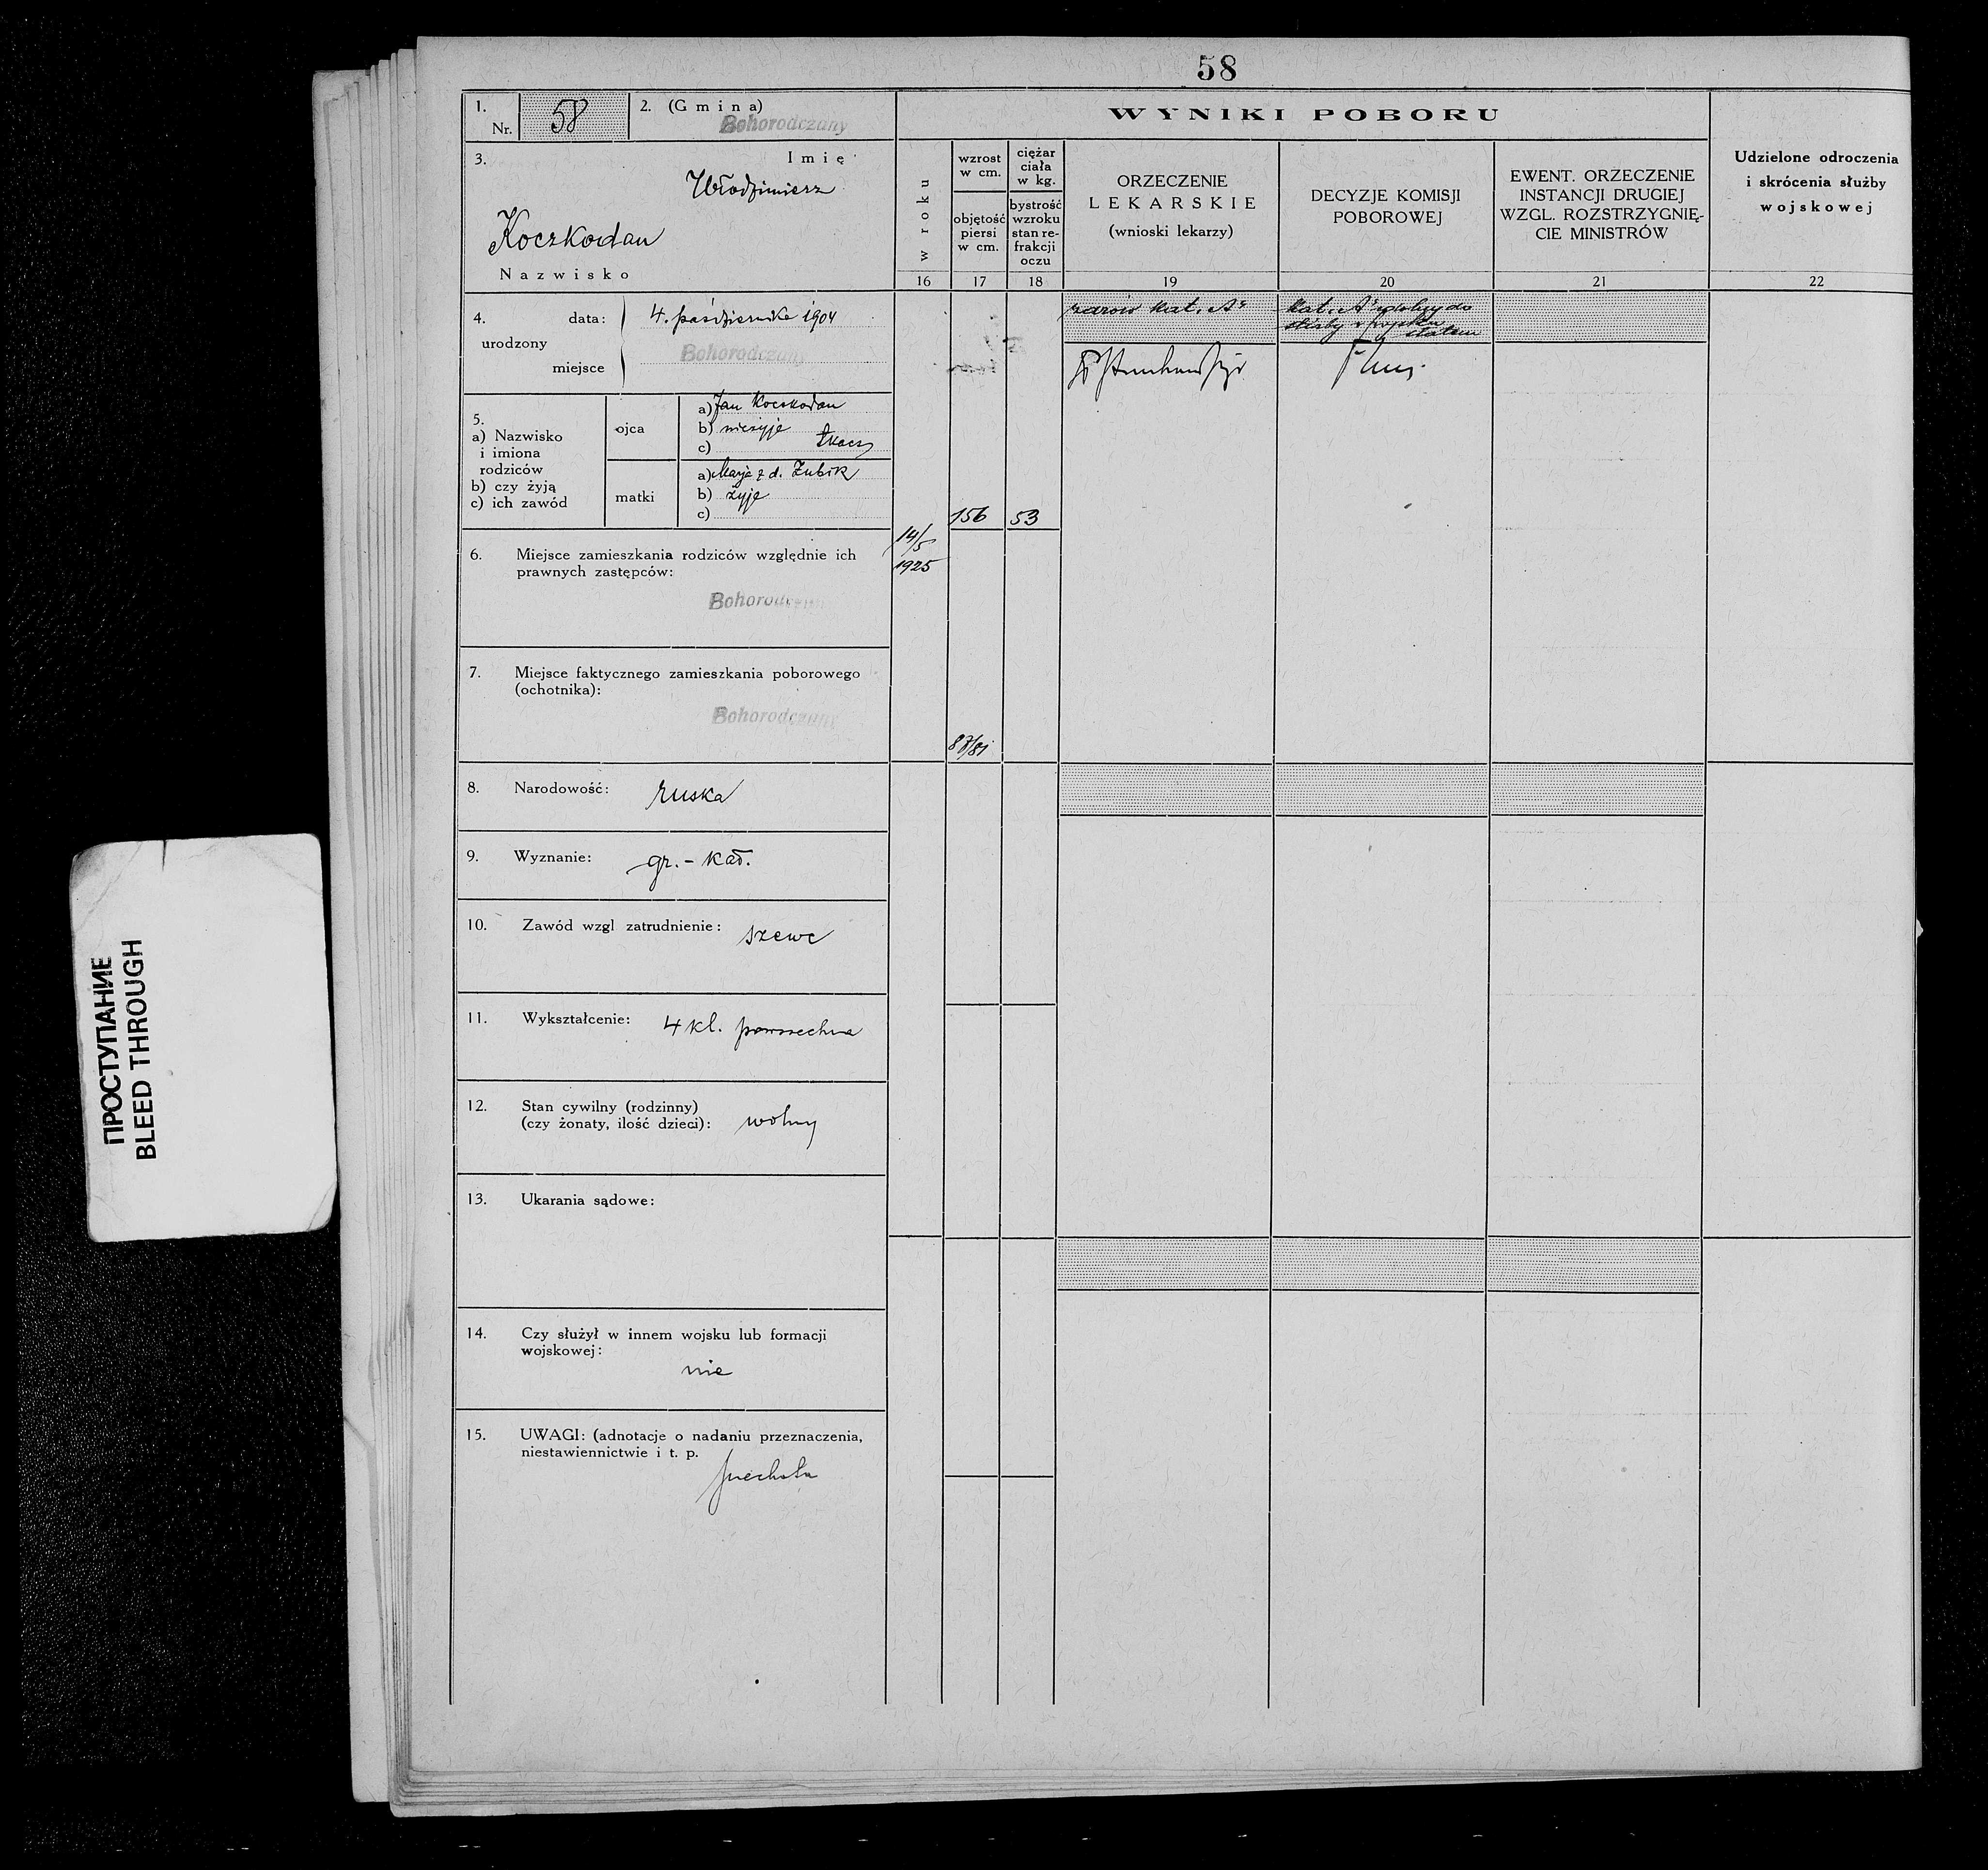 58
1.
Nr.
58
2. (Gmina)
Bohorodczany
WYNIKI POBORU
Udzielone odroczenia
i skrócenia służby
wojskowej
22
3.
Imię
Włodzimierz
Koczkodan
Nazwisko
w roku
16
wzrost
w cm.
objętość
piersi
w cm.
17
ciężar
ciała
w kg.
bystrość
wzroku
stan re-
frakcji
oczu
18
ORZECZENIE
LEKARSKIE
(wnioski lekarzy)
19
DECYZJE KOMISJI
POBOROWEJ
20
EWENT. ORZECZENIE
INSTANCJI DRUGIEJ
WZGL. ROZSTRZYGNIĘ-
CIE MINISTRÓW
21
4.
urodzony
data:
4. października 1904
miejsce
Bohorodczany
zdrów kat. A
kat. A zdolny do
służby w wojsku
stałem
5.
a) Nazwisko
i imiona
rodziców
b) czy żyją
c) ich zawód
ojca
a) Jan Koczkodan
b) nieżyje
c) tkacz
matki
a) Marja z d. Zubik
b) żyje
c)
156
53
14/5
1925
6. Miejsce zamieszkania rodziców względnie ich
prawnych zastępców:
Bohorodczany
7. Miejsce faktycznego zamieszkania poborowego
(ochotnika):
Bohorodczany
8. Narodowość: ruska
9. Wyznanie: gr.-kat.
10. Zawód wzgl zatrudnienie: szewc
11. Wykształcenie: 4 kl. powszechna
12. Stan cywilny (rodzinny)
(czy żonaty, ilość dzieci): wolny
13. Ukarania sądowe:
14. Czy służył w innem wojsku lub formacji
wojskowej:
nie
15. UWAGI: (adnotacje o nadaniu przeznaczenia,
niestawiennictwie i t. p.
piechota
ПРОСТУПАНИЕ
BLEED THROUGH